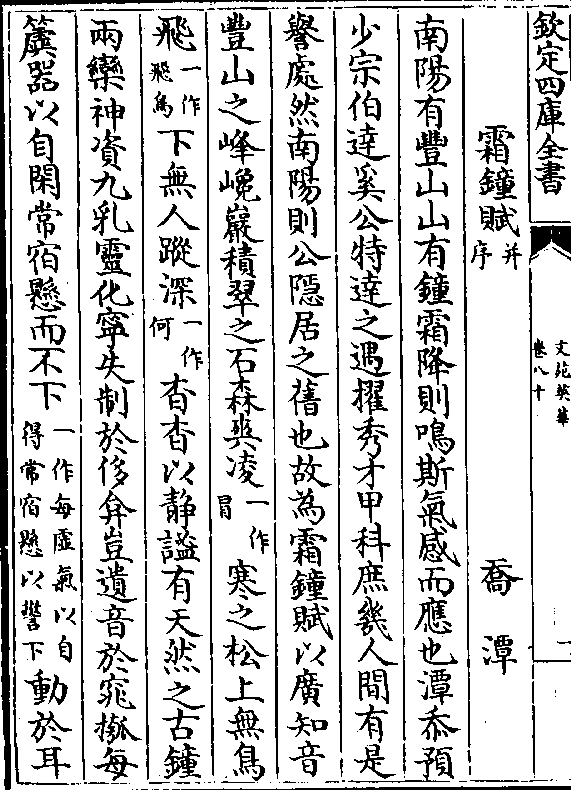 欽定四庫全書
文苑英華
卷八十
霜鐘賦并序
喬潭
南陽有豐山山有鐘霜降則鳴斯氣感而應也潭忝預
少宗伯達奚公特達之遇擢秀才甲科庶幾人間有是
譽處然南陽則公隱居之舊也故為霜鐘賦以廣知音
豐山之峰巉巖積翠之石森與凌一作冒寒之松上無鳥
飛一作飛鳥下無人蹤深一作何杳杳以静謐有天然之古鐘
兩欒神資九乳靈化寧失制於侈弇豈遺音於窕摦每
簴器以自閑常宿懸而不下一作每虛氣以自得常宿懸以讋下動於耳